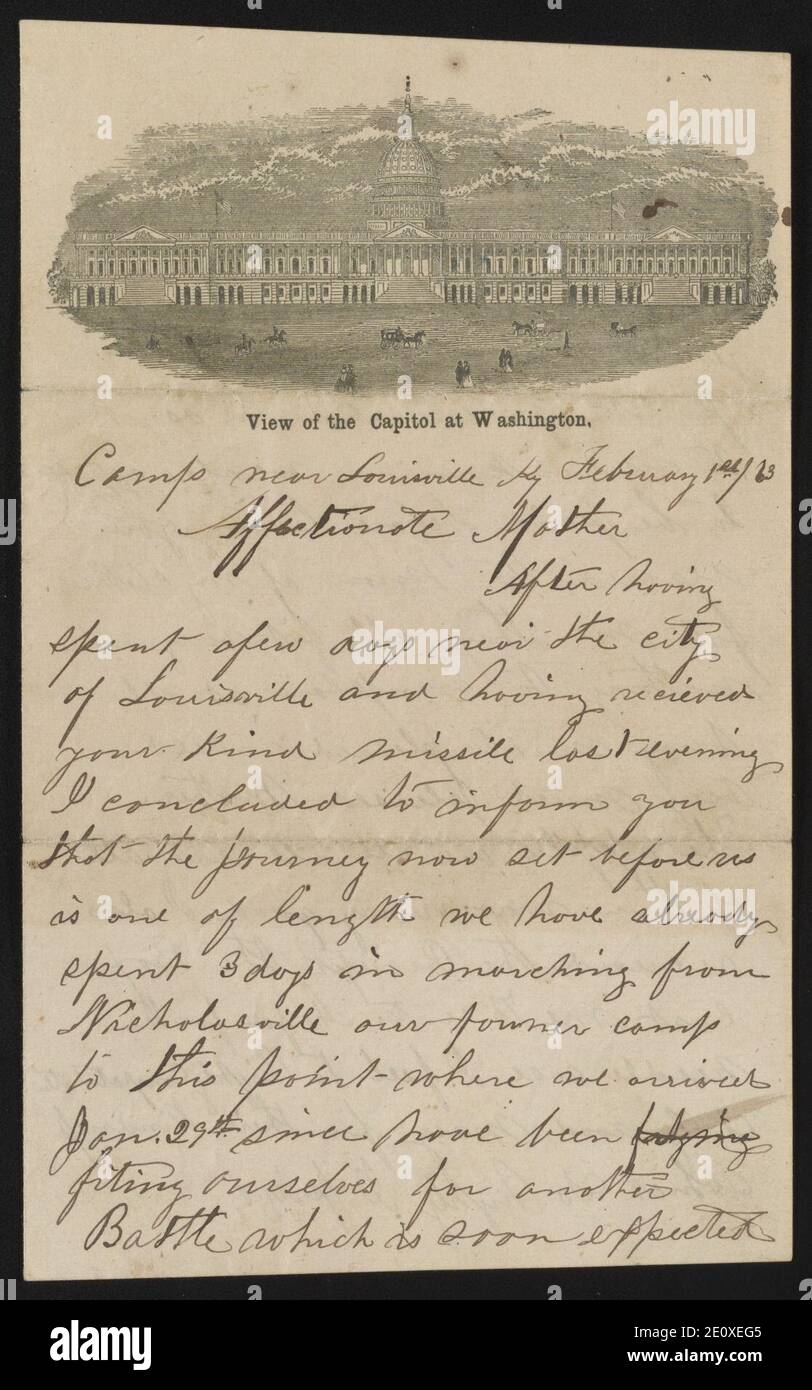 View of the Capitol at Washington.
Camp near Louisville Ky February 1st/63
Affectionate Mother
After having
spent a few days near the city
of Louisville and having recieved
your kind missile last evening
I concluded to inform you
that the journey now set before us
is one of length we have already
spent 3 days in marching from
Nicholasville our former camp
to this point where we arrived
Jan. 29th since have been
fiting ourselves for another
Battle which is soon expected
alamy
Image ID: 2E0XEG5
www.alamy.com